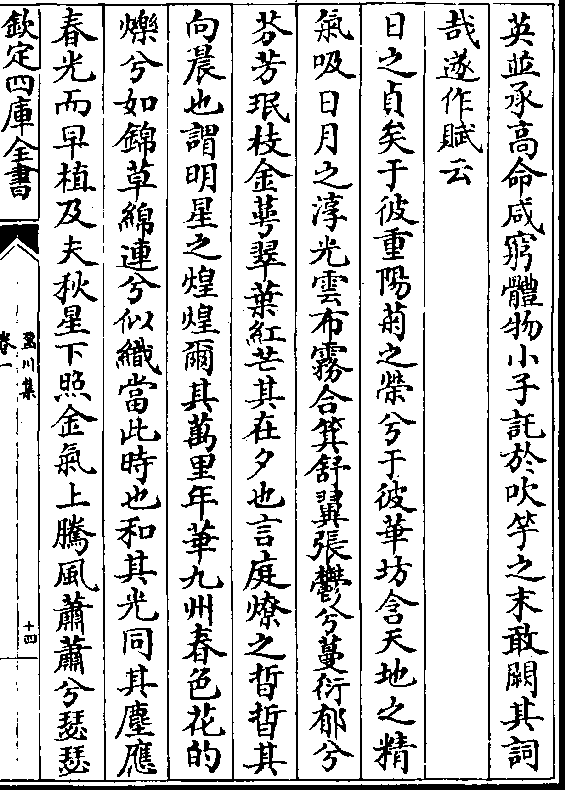 英並承高命咸窮體物小子託於吹竽之末敢闕其詞
哉遂作賦云
日之貞矣于彼重陽菊之榮兮于彼華坊含天地之精
氣吸日月之淳光雲布霧合箕舒翼張鬱兮蔓衍郁兮
芬芳珉枝金萼翠葉紅芒其在夕也言庭燎之晢晢其
向晨也謂明星之煌煌爾其萬里年華九州春色花的
爍兮如錦草綿連兮似織當此時也和其光同其塵應
春光而早植及夫秋星下照金氣上騰風蕭蕭兮瑟瑟
欽定四庫全書
盈川集
卷一
十四